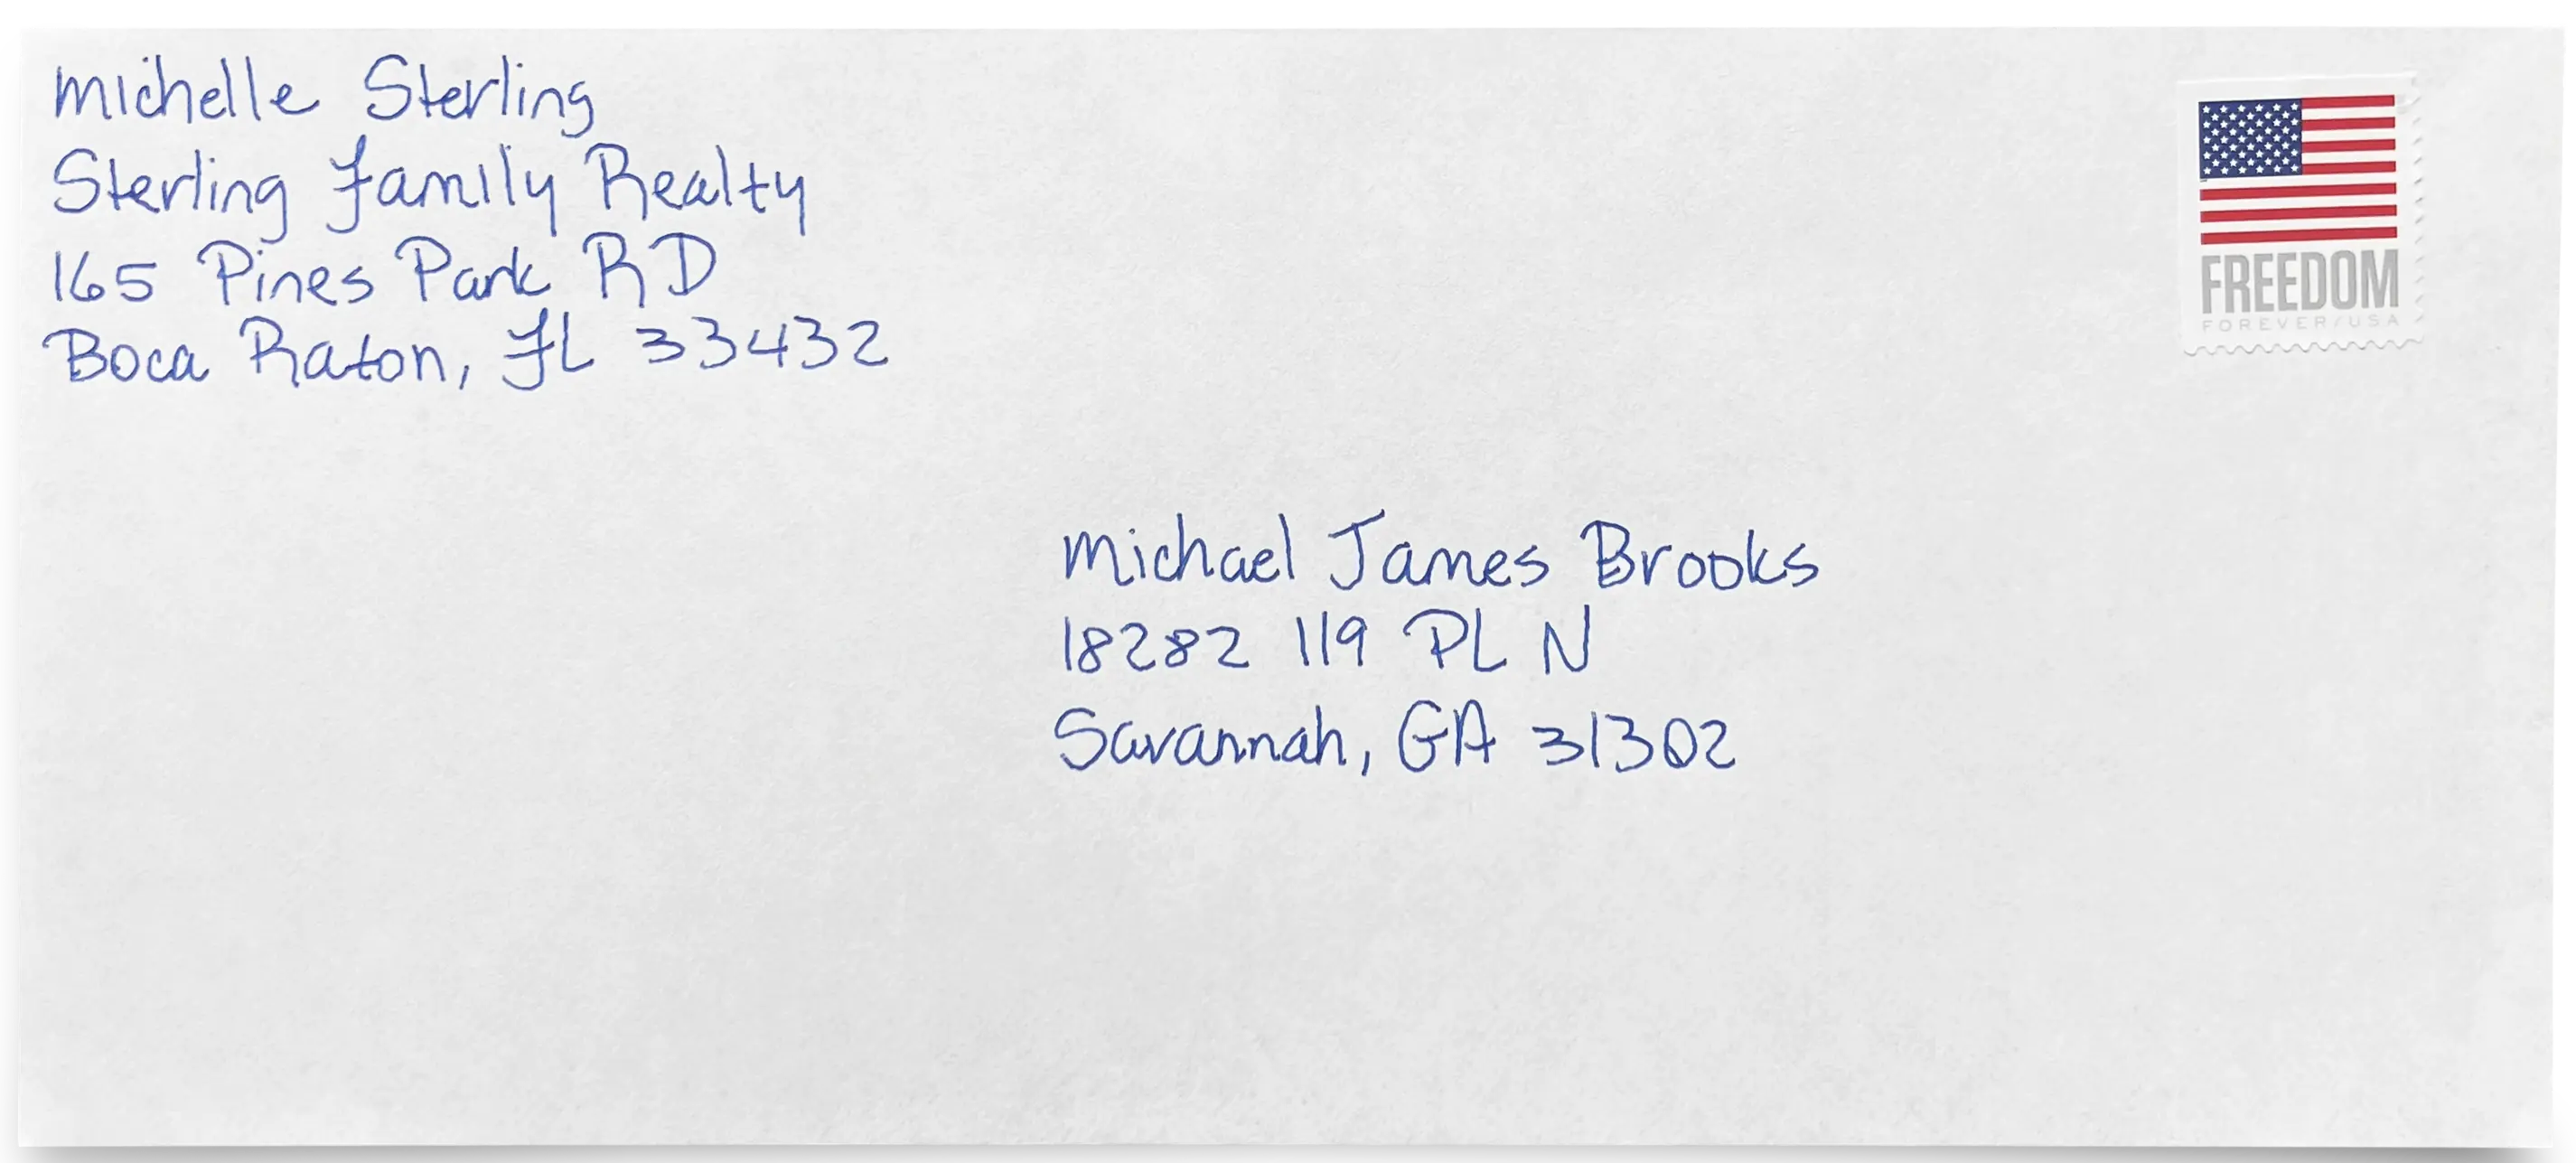 Michelle Sterling
Sterling Family Realty
165 Pines Park RD
Boca Raton, FL 33432
FREEDOM
FOREVER/USA
Michael James Brooks
18282 119 PL N
Savannah, GA 31302